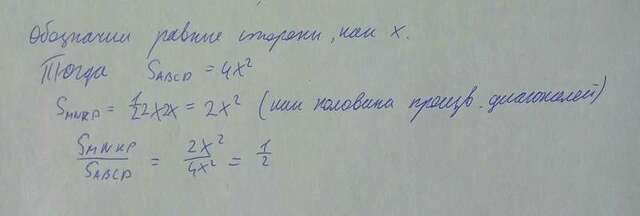 Обозначим равные стороны, как x.
Тогда S_ABCD = 4x²
S_MNKP = 1/2 2x2x = 2x² (как половина произв. диагоналей)
S_MNKP/S_ABCD = 2x²/4x² = 1/2